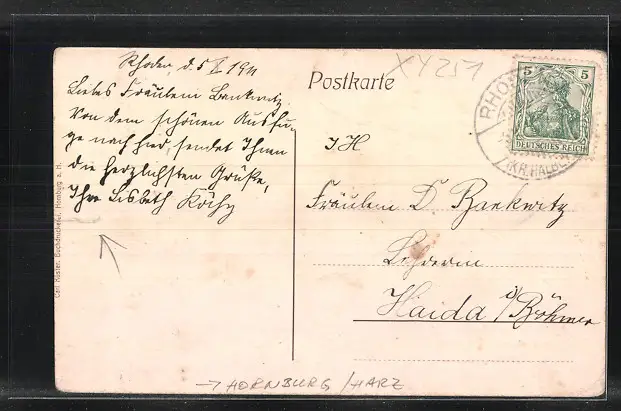 Rhoden, d. 5 X 1911
Liebes Fräulein Bankwitz
Von dem schönen Ausflu-
ge nach hier sendet Ihnen
die herzlichsten Grüße,
Ihre Lisbeth
Postkarte
XY251
5 5
DEUTSCHES REICH
RHO
(KR. HALBE
I H
Fräulein D. Bankwitz
Lehrerin
Haida i/Böhmen
Carl Köster, Buchdruckerei, Hornburg a. H.
→ HORNBURG / HARZ